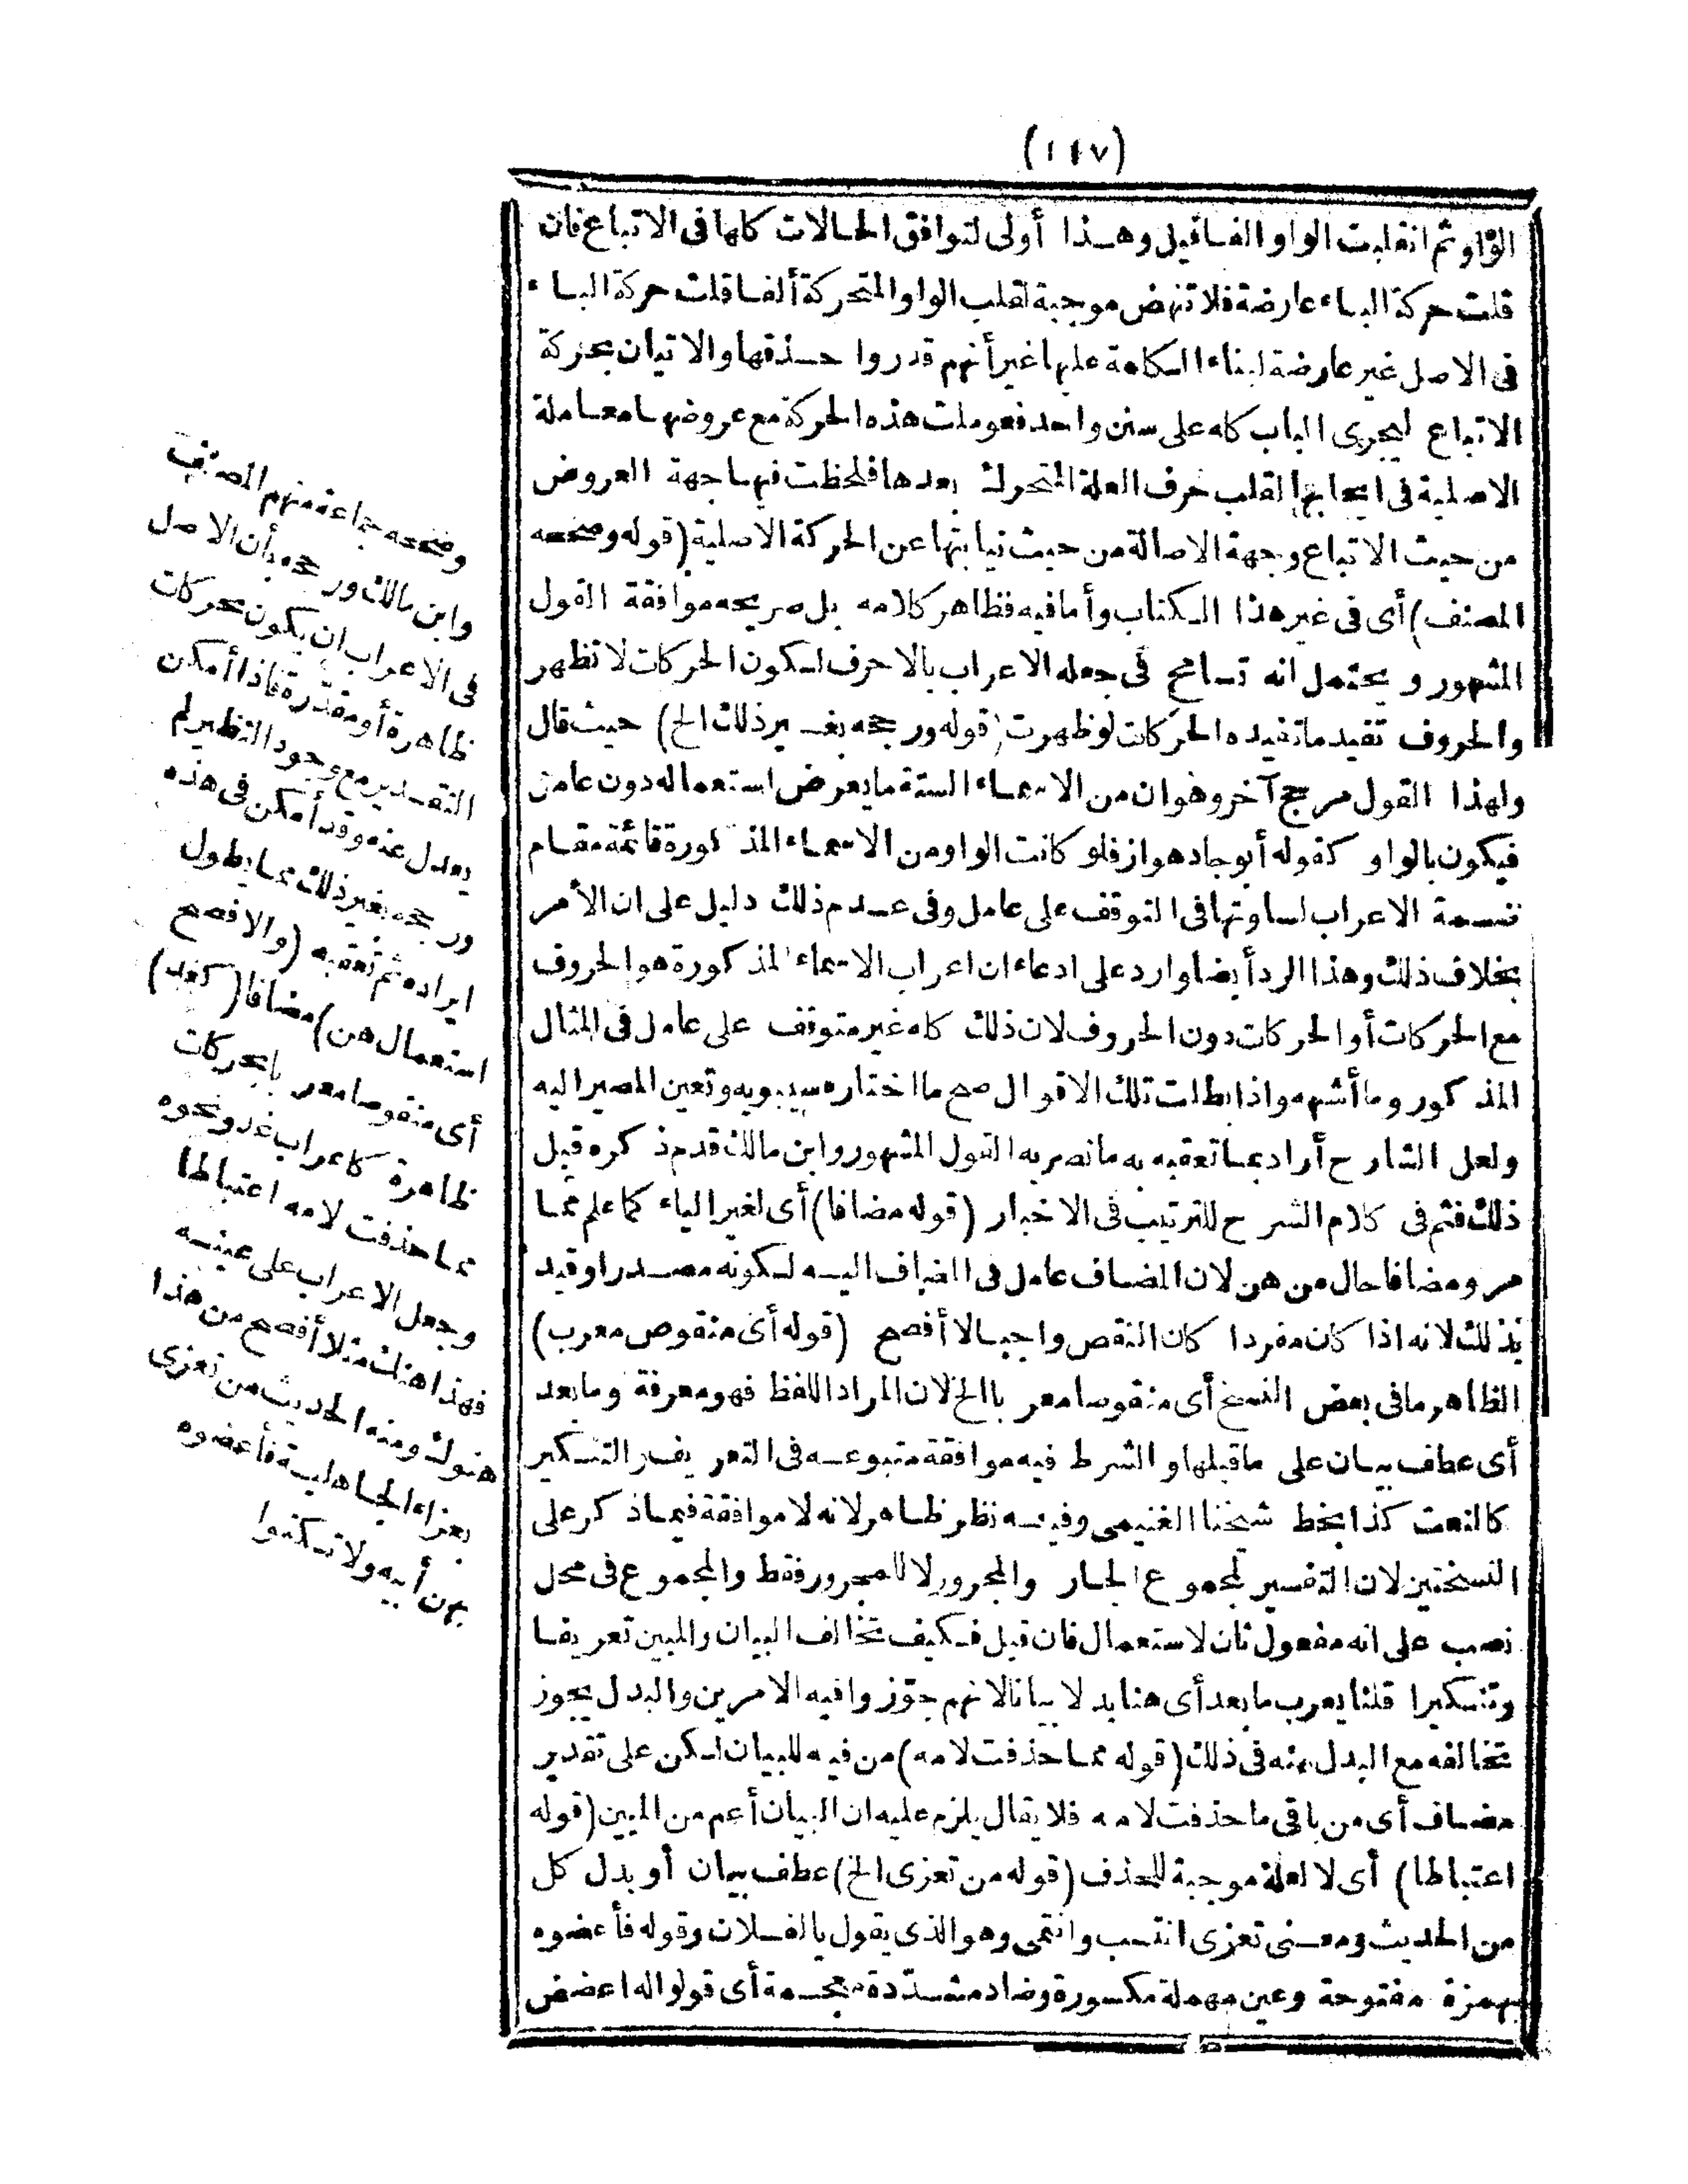 (١١٧)
الواو ثم انقلبت الواو الفا قيل وهذا أولى لتوافق الحالات كلها فى الاتباع فان
قلت حركة الباء عارضة فلا تنهض موجبة لقلب الواو المتحركة ألفا قلت حركة الباء
فى الاصل غير عارضة لبناء الكلمة عليها غير أنهم قدروا حذفها والاتيان بحركة
الاتباع ليجرى الباب كله على سنن واحد فعوملت هذه الحركة مع عروضها معاملة
الاصلية فى ايجابها القلب حرف العلة المتحرك بعدها فلحظت فيها جهة العروض
من حيث الاتباع وجهة الاصالة من حيث نيابتها عن الحركة الاصلية (قوله وصححه
المصنف) أى فى غير هذا الكتاب وأما فيه فظاهر كلامه بل صريحه موافقة القول
المشهور و يحتمل انه تسامح فى جعله الاعراب بالاحرف لكون الحركات لا تظهر
والحروف تفيد ما تفيده الحركات لو ظهرت (قوله ورجحه بغير ذلك الخ) حيث قال
ولهذا القول مرجح آخر وهو ان من الاسماء الستة ما يعرض استعماله دون عامل
فيكون بالواو كقوله أبو جاد هواز فلو كانت الواو من الاسماء المذكورة قائمة مقام
ضمة الاعراب لساوتها فى التوقف على عامل وفى عدم ذلك دليل على ان الأمر
بخلاف ذلك وهذا الرد أيضا وارد على ادعاء ان اعراب الاسماء المذكورة هو الحروف
مع الحركات أو الحركات دون الحروف لان ذلك كله غير متوقف على عامل فى المثال
المذكور وما أشبهه واذا بطلت تلك الاقوال صح ما اختاره سيبويه وتعين المصير اليه
ولعل الشارح أراد بما تعقبه به ما نصر به القول المشهور وابن مالك قدم ذكره قبل
ذلك فثم فى كلام الشرح للترتيب فى الاخبار (قوله مضافا) أى لغير الياء كما علم مما
مر ومضافا حال من هن لان المضاف عامل فى المضاف اليه لكونه مصدرا وقيد
بذلك لانه اذا كان مفردا كان النقص واجبا لا أفصح (قوله أى منقوص معرب)
الظاهر ما فى بعض النسخ أى منقوصا معربا الخ لان المراد اللفظ فهو معرفة وما بعد
أى عطف بيان على ما قبلها و الشرط فيه موافقة متبوعه فى التعريف والتنكير
كالنعت كذا بخط شيخنا الغنيمى وفيه نظر ظاهر لانه لا موافقة فيما ذكر على
النسختين لان التفسير لمجموع الجار والمجرور لا للمجرور فقط والمجموع فى محل
نصب على انه مفعول ثان لاستعمال فان قيل فكيف تخالف البيان والمبين تعريفا
وتنكيرا قلنا يعرب ما بعد أى هنا بدلا بيانا لانهم جوّزوا فيه الامرين والبدل يجوز
تخالفه مع المبدل منه فى ذلك (قوله مما حذفت لامه) من فيه للبيان لكن على تقدير
مضاف أى من باقى ما حذفت لامه فلا يقال يلزم عليه ان البيان أعم من المبين (قوله
اعتباطا) أى لا لعلة موجبة للحذف (قوله من تعزى الخ) عطف بيان أو بدل كل
من الحديث ومعنى تعزى انتسب وانتمى وهو الذى يقول يا لفلان وقوله فأعضوه
بهمزة مفتوحة وعين مهملة مكسورة وضاد مشدّدة معجمة أى قولوا له اعضض
وصححه جماعة منهم المصنف
وابن مالك ورجحه بأن الاصل
فى الاعراب ان يكون بحركات
ظاهرة أو مقدّرة فاذا أمكن
التقدير مع وجود النظير لم
يعدل عنه وقد أمكن فى هذه
ورجحه بغير ذلك مما يطول
ايراده ثم تعقبه (والافصح
استعمال هن) مضافا (كغد)
أى منقوصا معربا بحركات
ظاهرة كاعراب غد ونحوه
مما حذفت لامه اعتباطا
وجعل الاعراب على عينه
فهذا هنك مثلا أفصح من هذا
هنوك ومنه الحديث من تعزى
بعزاء الجاهلية فأعضوه
بهن أبيه ولا تكنوا